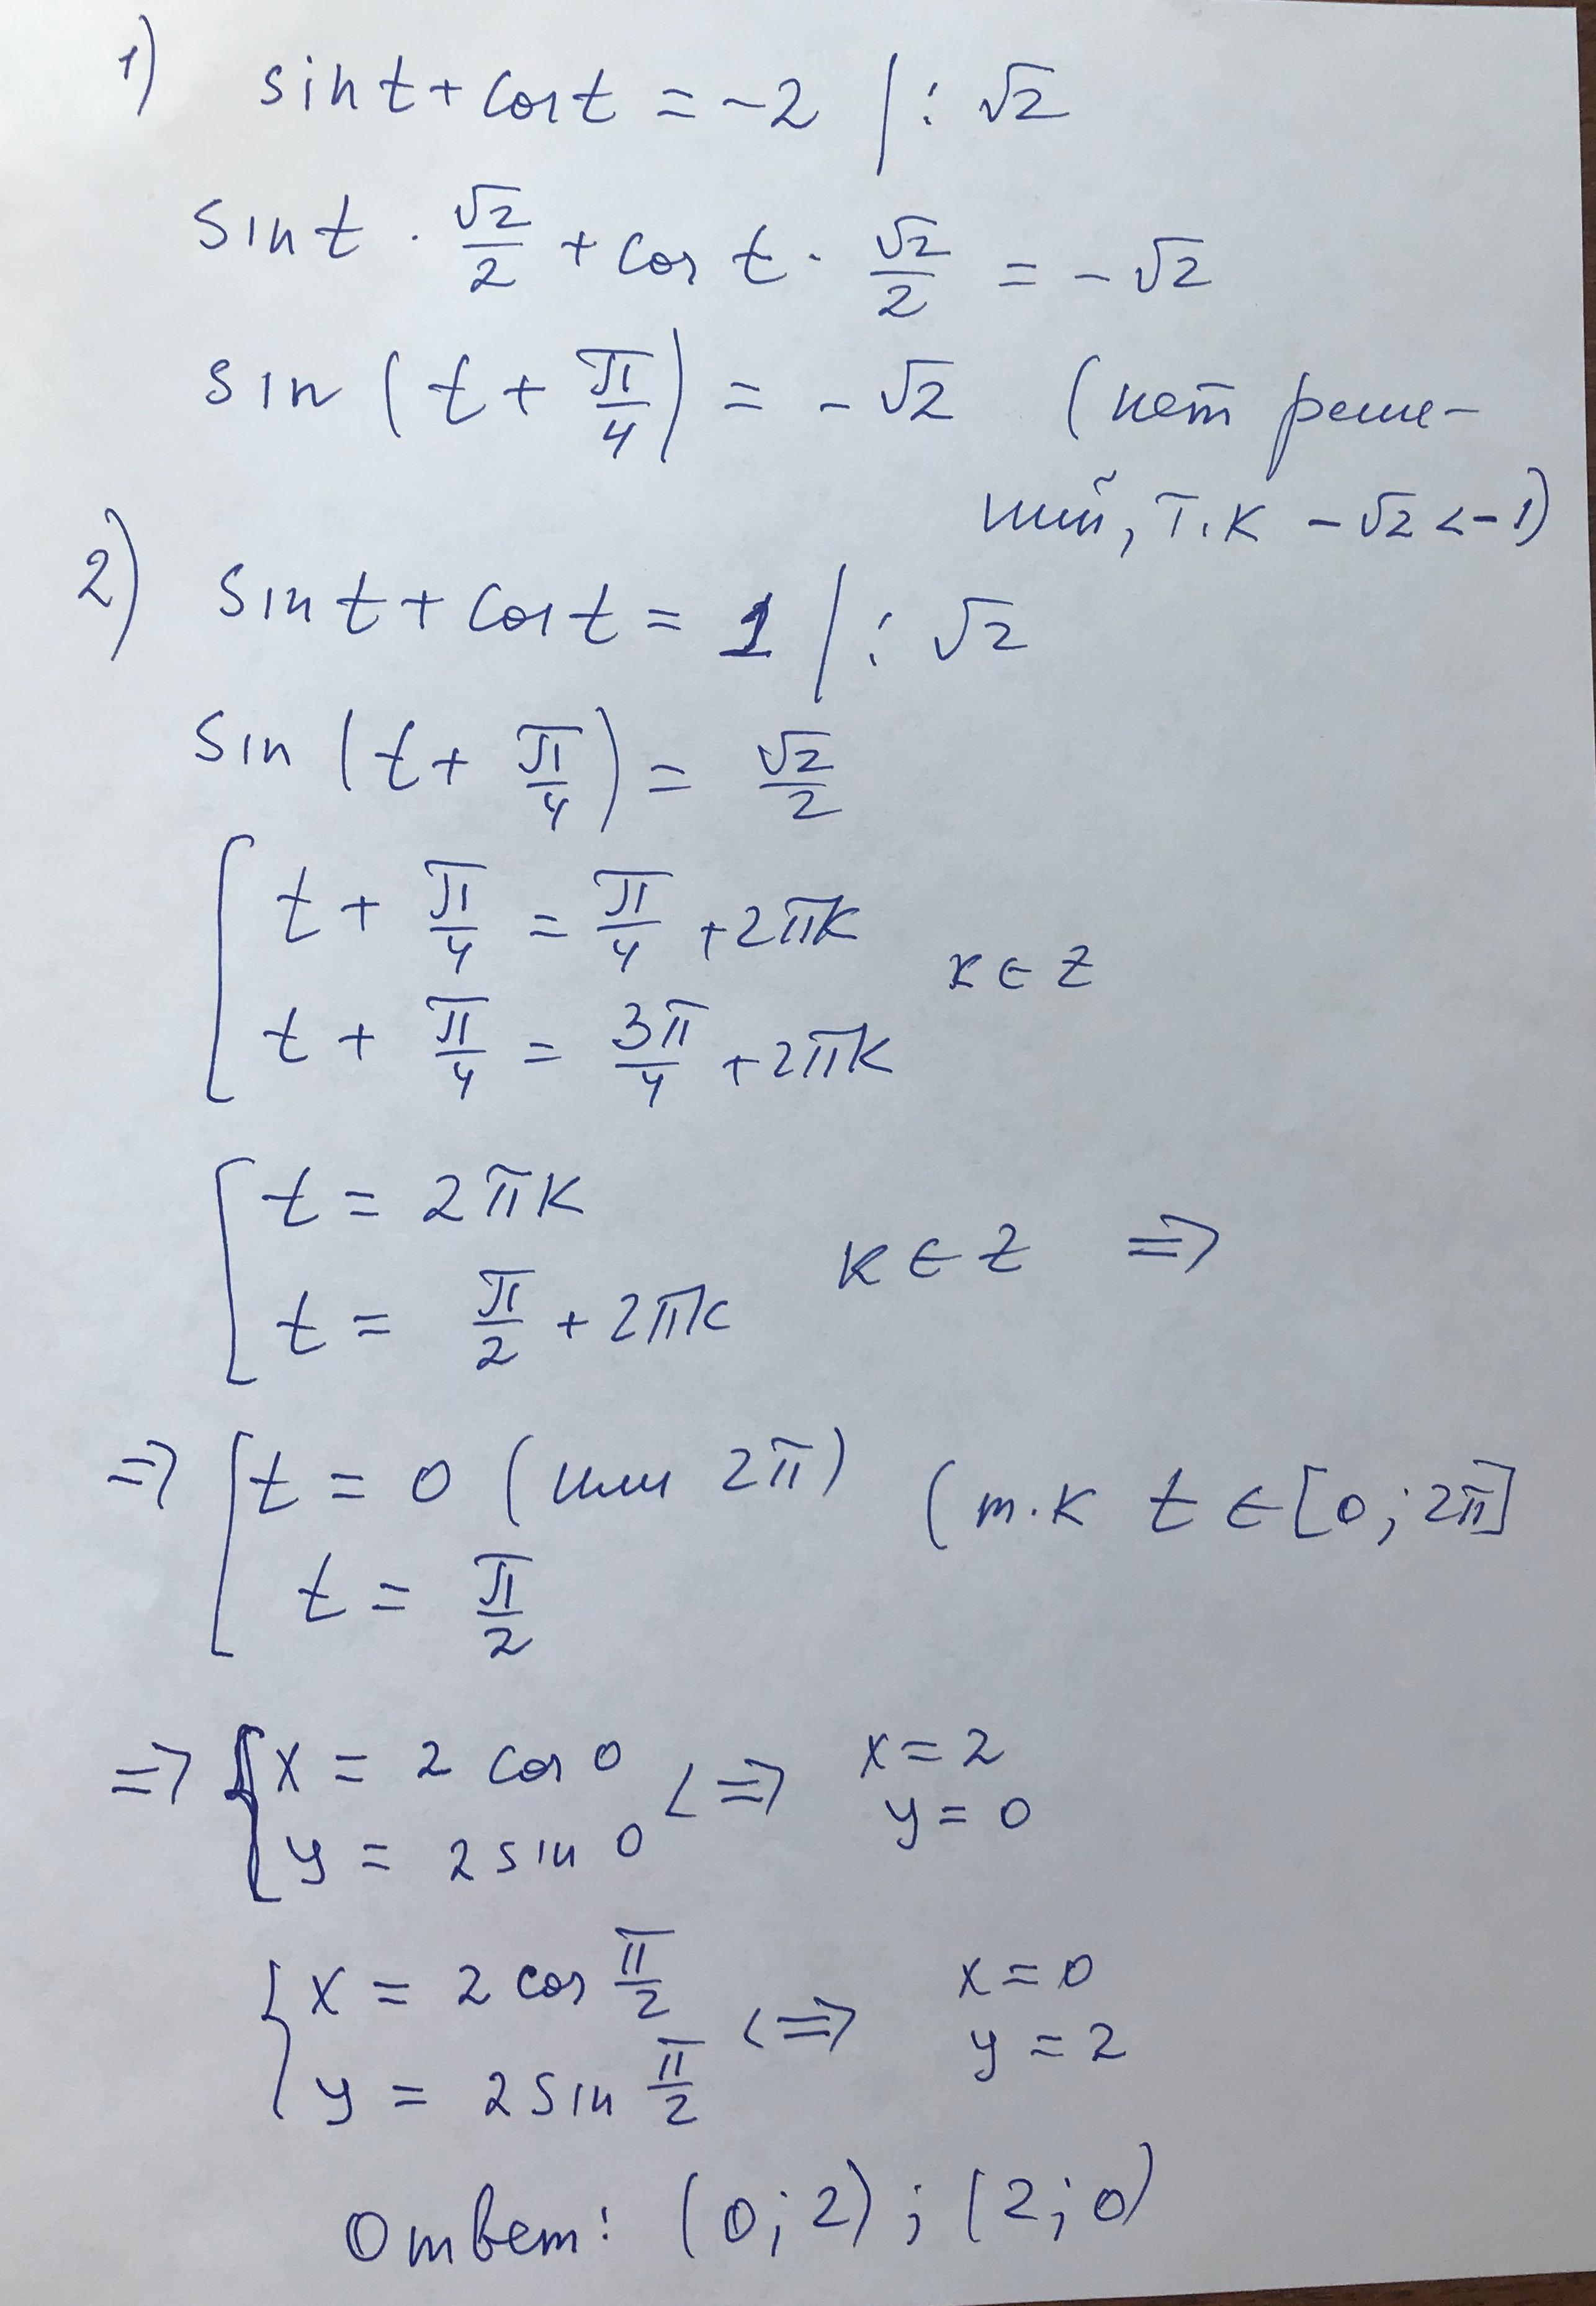 1) sin t + cos t = -2 | : √2
sin t · √2/2 + cos t · √2/2 = -√2
sin (t + π/4) = -√2 (нет реше-
ний, т.к -√2 < -1)
2) sin t + cos t = 1 | : √2
sin (t + π/4) = √2/2
[ t + π/4 = π/4 + 2πk
k ∈ Z
t + π/4 = 3π/4 + 2πk
[ t = 2πk
k ∈ Z ⇒
t = π/2 + 2πk
⇒ [ t = 0 (или 2π) (т.к t ∈ [0; 2π]
t = π/2
⇒ { x = 2 cos 0 <=> x = 2
y = 2 sin 0 y = 0
{ x = 2 cos π/2 <=> x = 0
y = 2 sin π/2 y = 2
Ответ: (0; 2); (2; 0)